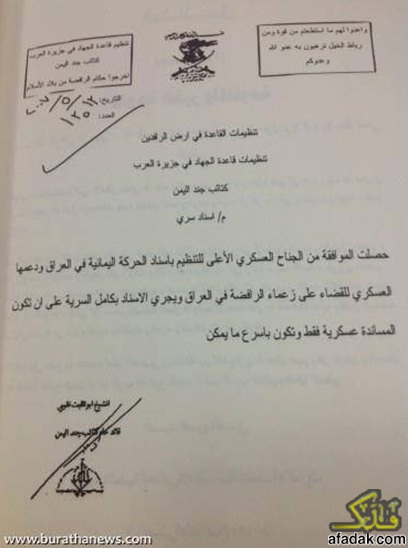 واعدوا لهم ما استطعتم من قوة ومن
رباط الخيل ترهبون به عدو الله
وعدوكم
تنظيم قاعدة الجهاد في جزيرة العرب
كتائب جند اليمن
اخرجوا حكام الرافضة من بلاد الاسلام
التاريخ:
العدد:
تنظيمات القاعدة في ارض الرافدين
تنظيمات قاعدة الجهاد في جزيرة العرب
كتائب جند اليمن
م/ اسناد سري
حصلت الموافقة من الجناح العسكري الأعلى للتنظيم بأسناد الحركة اليمانية في العراق ودعمها
العسكري للقضاء على زعماء الرافضة في العراق ويجري الاسناد بكامل السرية على ان تكون
المساندة عسكرية فقط وتكون بأسرع ما يمكن
قائد عام كتائب جند اليمن
www.burathanews.com
afadak.com